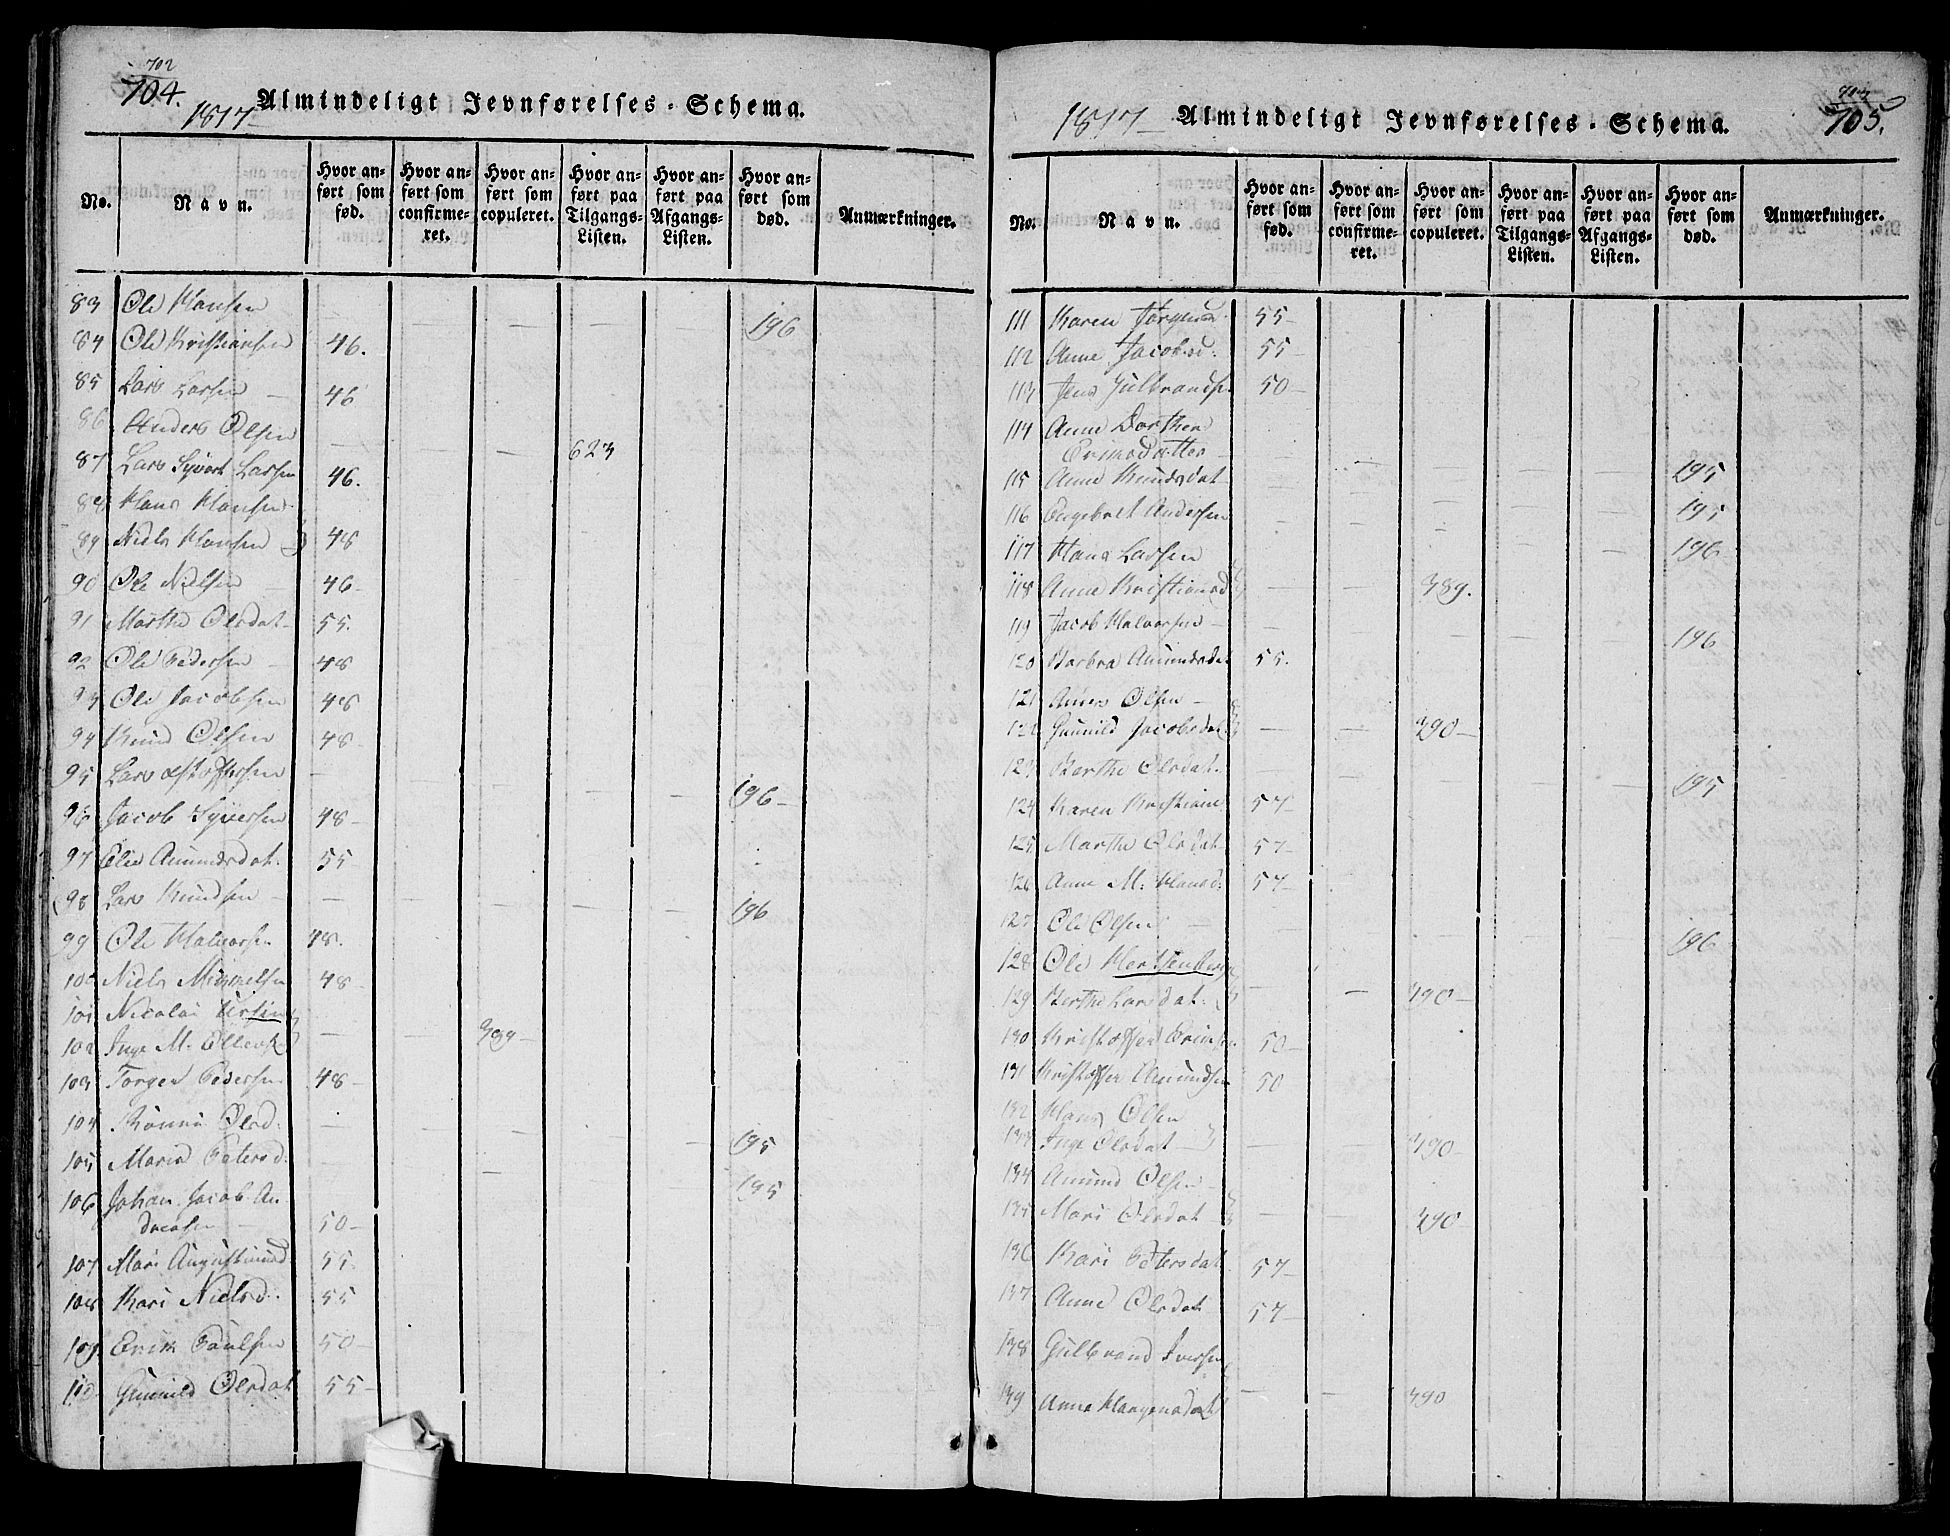 702
704.
1817 Almindeligt Jevnførelses-Schema.
No.
Navn.
Hvor anført som fød.
Hvor anført som confirmeret.
Hvor anført som copuleret.
Hvor anført paa Tilgangs-Listen.
Hvor anført paa Afgangs-Listen.
Hvor anført som død.
Anmærkninger.
83 Ole Hansen — — — — — 196
84 Ole Kristiansen 46.
85 Lars Larsen — 46
86 Anders Olsen — — — 623
87 Lars Syvert Larsen 46.
88 Hans Hansen
89 Niels Hansen 48
90 Ole Nielsen — 46-
91 Marthe Olsdat- 55.
92 Ole Pedersen — 48
93 Ole Jacobsen 48
94 Knud Olsen 48-
95 Lars — — — — — 196-
96 Jacob Syversen 48-
97 Elie Amundsdat. 55
98 Lars Knudsen — — — — — — 196
99 Ole Halvorsen 48.
100 Niels Mikkelsen 48-
101 Nicolai
102 Inge M. — —
103 Torger Pedersen 48-
104 Rønni Olsd. — — — — — 195
105 Maria Petersd. — — — — — 195
106 Johan Jacob An
dreasen — 50-
107 Mari 55.
108 Kari Nielsd. 55
109 Erik Paulsen 50-
110 Gunnild Olsdat 55-
703
705.
1817 Almindeligt Jevnførelses-Schema.
No.
Navn.
Hvor anført som fød.
Hvor anført som confirmeret.
Hvor anført som copuleret.
Hvor anført paa Tilgangs-Listen.
Hvor anført paa Afgangs-Listen.
Hvor anført som død.
Anmærkninger.
111 Karen 55-
112 Anne Jacobsd. 55-
113 Jens Gulbrandsen 50-
114 Anne Dorthea
Eriksdatter — — — — — 195
115 Anne Knudsdat — — — — — 195
116 Engebret Andersen — — — — — 196-
117 Hans Larsen
118 Anne Kristiansd — — 389.
119 Jacob Halvorsen — — — — — — 196
120 Barbra Amundsdat 55.
121 Anders Olsen —
122 Gunnild Jacobsdat — — 390-
123 Berthe Olsdat. — — — — — 195
124 Karen Kristians 57-
125 Marthe Olsdat 57-
126 Anne M. Hansd. 57-
127 Ole Olsen — — — — — — 196
128 Ole
129 Berthe Larsdat. — — 390-
130 Kristoffer 50-
131 Kristoffer Amundsen 50
132 Hans Olsen
133 Inge Olsdat — — 390-
134 Amund Olsen -
135 Mari Olsdat — — 390-
136 Kari Petersdat 57-
137 Anne Olsdat 57-
138 Gulbrand Iversen
139 Anne Haagensdat — — 390